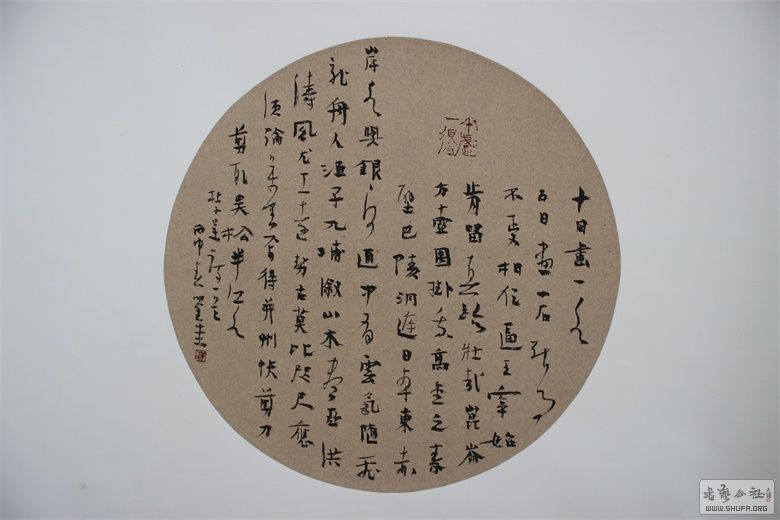 十日畫一水
五日畫一石能事
不受相促逼王宰始
肯留真跡壯哉崑崙
方壺圖掛君高堂之素
壁巴陵洞庭日本東赤
岸水與銀河通中有雲氣隨飛
龍舟人漁子入浦漵山木盡亞洪
濤風尤工遠勢古莫比咫尺應
須論萬里焉得并州快剪刀
剪取吳松半江水
丙申春
WWW.SHUFA.ORG